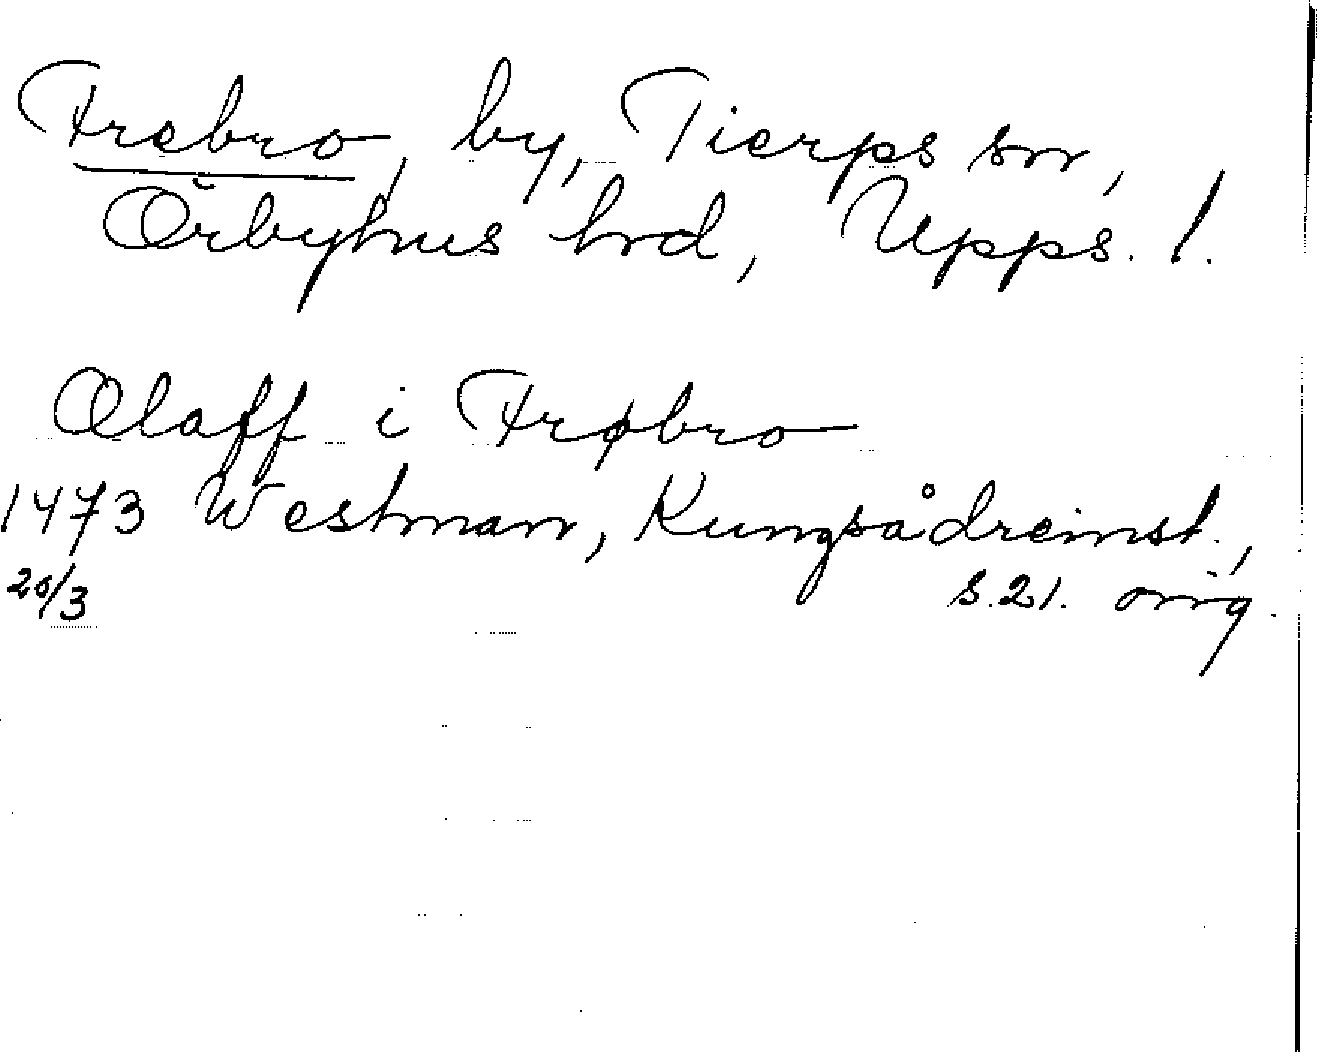 Frebro, by, Tierps sn,
Örbyhus hrd, Upps. l.
Olaff i Frøbro
1473 Westman, Kungsådreinst.,
20/3 s. 21. orig.